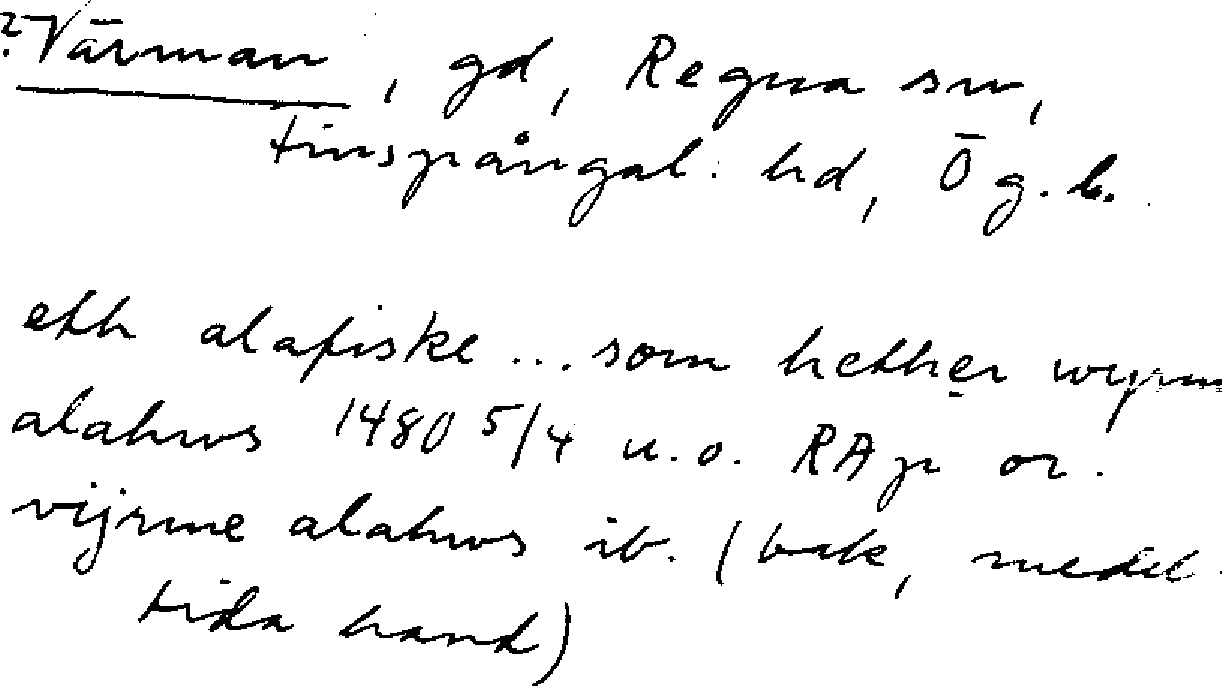 ? Värman, gd, Regna sn,
Finspångal. hd, Ög. l.
etth alafiske ... som hether wyrm
alahws 1480 5/4 u.o. RAp or.
vijrme alahws ib. (bak, medel-
tida hand)